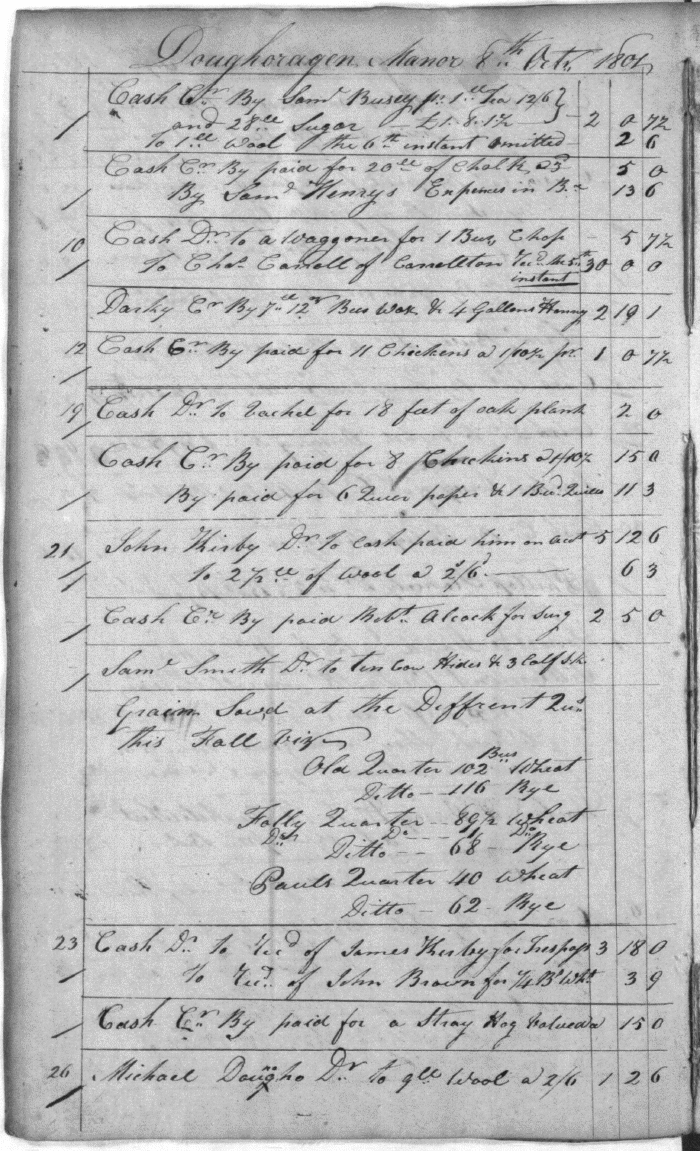 Doughoragen Manor 8th Octr. 1801
Cash Cr. By Saml. Busey pr. 1 ll Tea 12/6
and 28 ll Sugar £1.8.1½ } 2 0 7½
To 1 ll Wool the 6th instant omitted 2 6
Cash Cr. By paid for 20 ll of Chalk 5 0
By Saml. Henrys Expences in B. 13 6
10 Cash Dr. to a Waggoner for 1 Bus. Chop 5 7½
To Chas. Carroll of Carrollton Recd. the 5th 30 0 0
instant
Darky Cr. By 7 ll 12 Bees Wax & 4 Gallons Honny 2 19 1
12 Cash Cr. By paid for 11 Chickens a 1/10½ pr. 1 0 7½
19 Cash Dr. to Rachel for 18 feet of oak plank 2 0
Cash Cr. By paid for 8 Chickins a 1/10½ 15 0
By paid for 6 Quier paper & 1 Bud. Quiles 11 3
21 John Kirby Dr. to Cash paid him on acct 5 12 6
To 2½ ll of Wool a 2/6 6 3
Cash Cr. By paid Robt. Alcock for Surg 2 5 0
Saml. Smith Dr. to ten Cow Hides & 3 Calf Sk.
Grain Sow'd at the Diffrent Qurs.
this Fall Viz
Bus
Old Quarter 102 Wheat
Ditto 116 Rye
Folly Quarter 89½ Wheat
Do Do 16 Do
Ditto 68 Rye
Pauls Quarter 40 Wheat
Ditto 62 Rye
23 Cash Dr. to Recd. of James Kirby for Trespass 3 18 0
To Recd. of John Brown for ¾ B. Wht. 3 9
Cash Cr. By paid for a Stray Hog Valued a 15 0
26 Michael Dougho Dr. to 9 ll Wool a 2/6 1 2 6